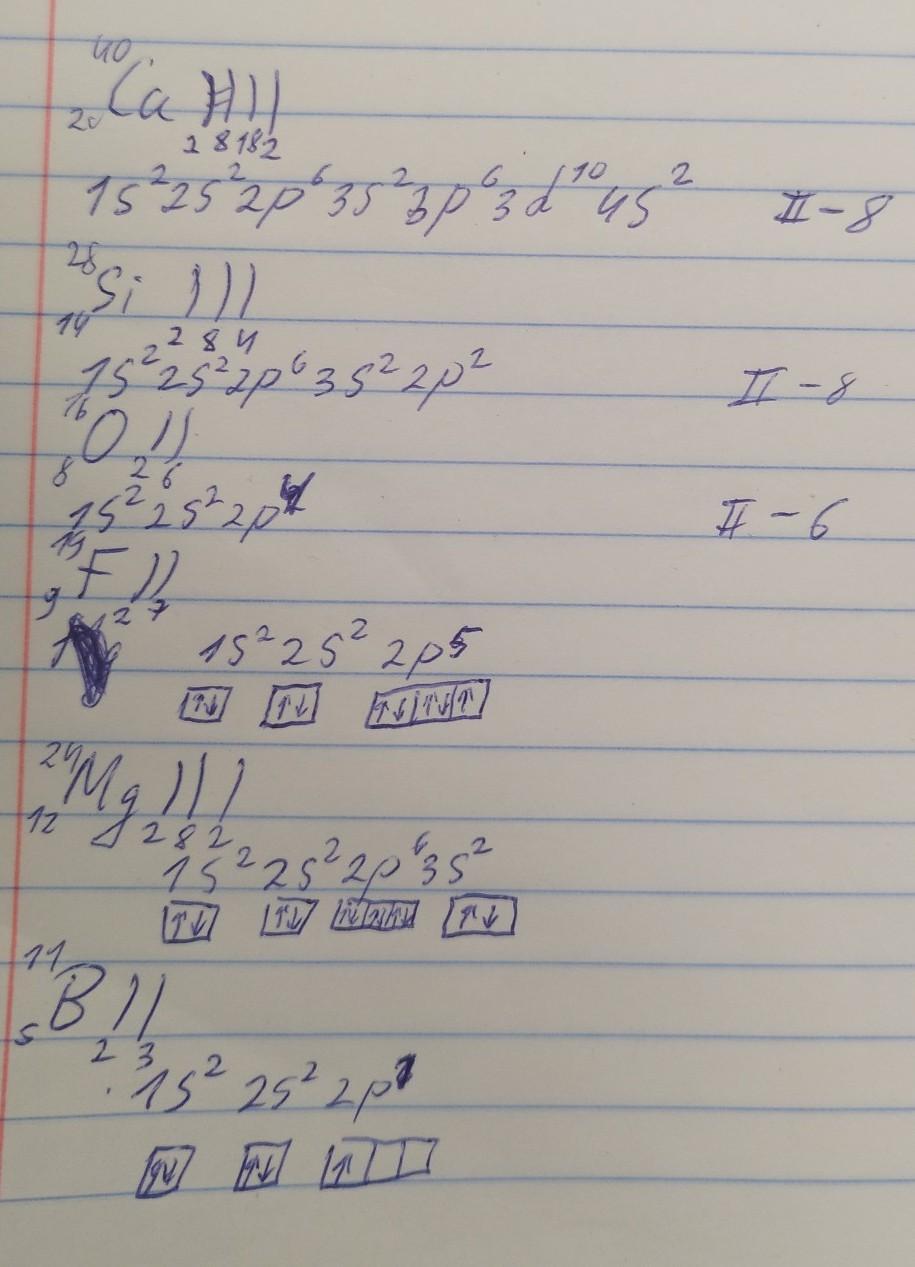 40
20 Ca
2 8 18 2
1s² 2s² 2p⁶ 3s² 3p⁶ 3d¹⁰ 4s² II - 8
28
14 Si
2 8 4
1s² 2s² 2p⁶ 3s² 2p² II - 8
16
8 O
2 6
1s² 2s² 2p⁴ II - 6
19
9 F
2 7
1s² 2s² 2p⁵
↑↓ ↑↓ ↑↓ ↑↓ ↑
24
12 Mg
2 8 2
1s² 2s² 2p⁶ 3s²
↑↓ ↑↓ ↑↓ ↑↓ ↑↓ ↑↓
11
5 B
2 3
1s² 2s² 2p¹
↑↓ ↑↓ ↑